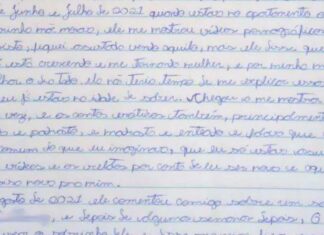 e junho e julho de 2021 quando estava no apartamento d
minha mãe morava, ele me mostrou vídeos pornográficos
isto, fiquei assustada vendo aquilo, mas ele disse que
Eu está crescendo e me tornando mulher, e por minha m
lhar o dia todo ela não tinha tempo de me explicar isso
eu já estava na idade de saber. Chegou a me mostrar
vez, e os contos eróticos também, principalmente
e padrasto, e madrasta e enteado e falava que
comum do que eu imaginava, que eu só estava assus
vídeos e os relatos por conta de eu ser nova e aqu
isso novo pra mim.
agosto de 2021 ele comentou comigo sobre um
, e depois de algumas semanas depois, O